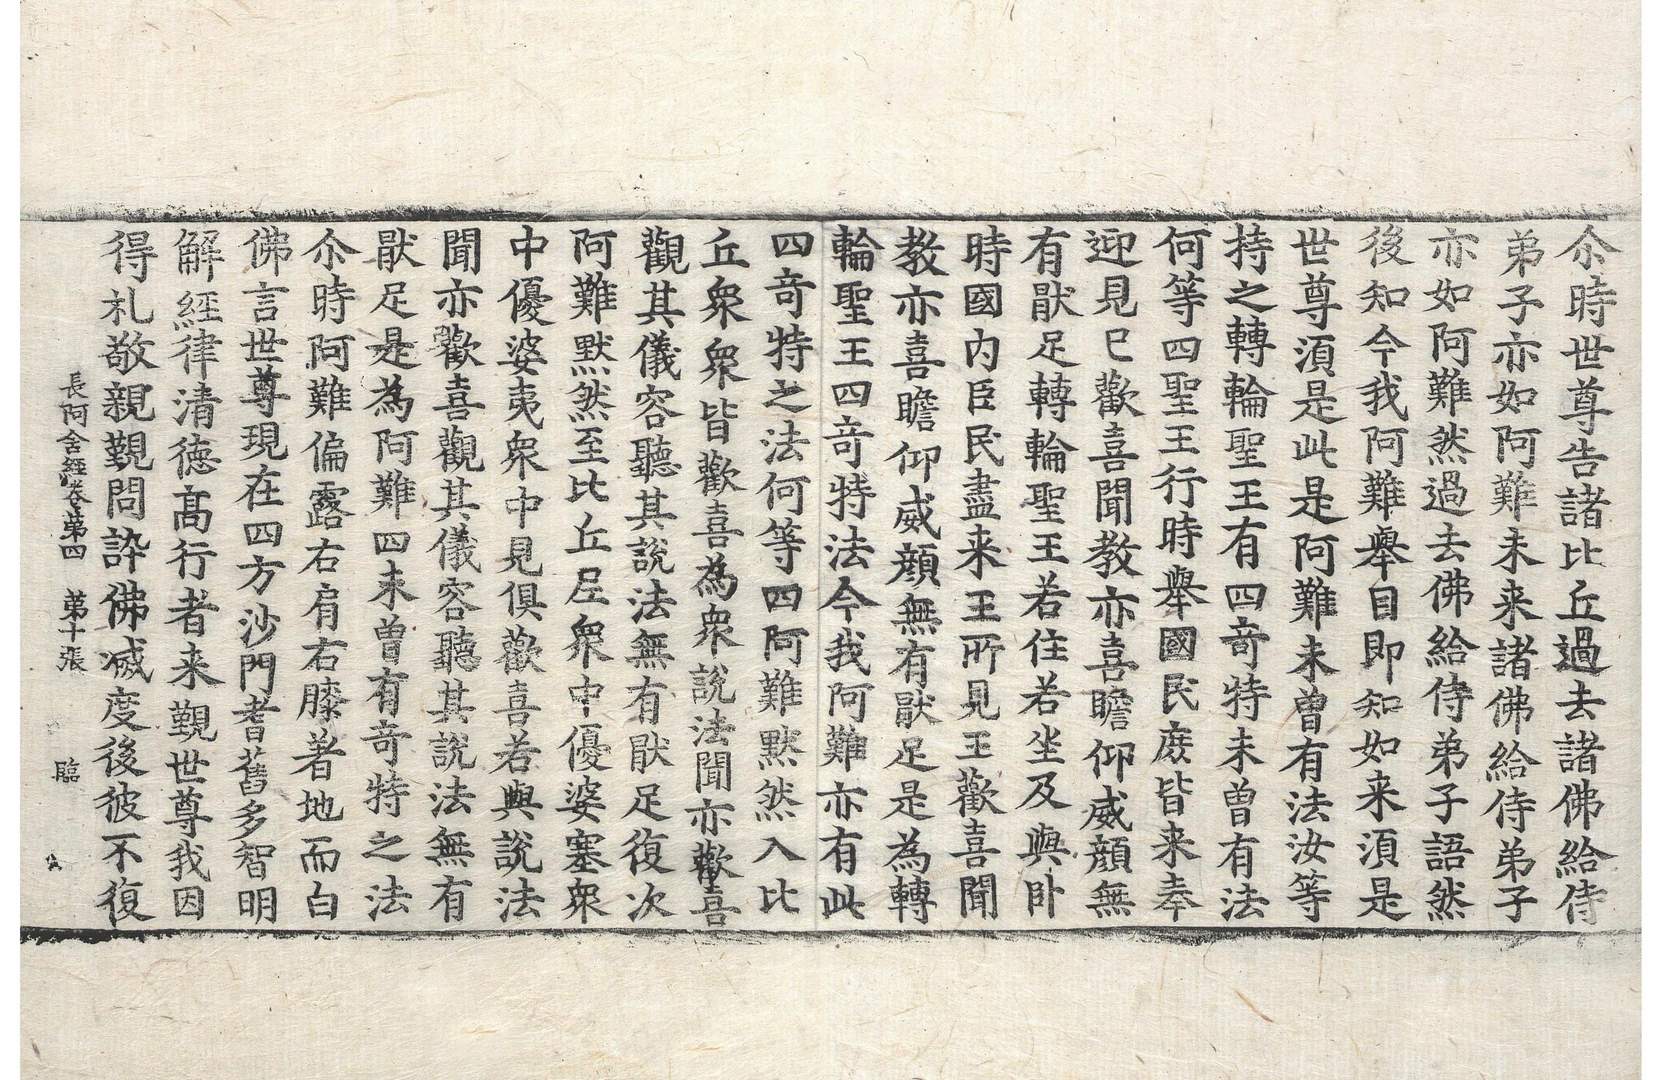 尒時世尊告諸比丘過去諸佛給侍
弟子亦如阿難未来諸佛給侍弟子
亦如阿難然過去佛給侍弟子語然
後知今我阿難舉目即知如来須是
世尊須是此是阿難未曾有法汝等
持之轉輪聖王有四竒特未曾有法
何等四聖王行時舉國民庶皆来奉
迎見已歡喜聞教亦喜瞻仰威顔無
有猒足轉輪聖王若住若坐及與卧
時國内臣民盡来王所見王歡喜聞
教亦喜瞻仰威顔無有猒足是為轉
輪聖王四竒特法今我阿難亦有此
四竒特之法何等四阿難默然入比
丘衆衆皆歡喜為衆說法聞亦歡喜
觀其儀容聽其說法無有猒足復次
阿難默然至比丘尼衆中優婆塞衆
中優婆夷衆中見俱歡喜若與說法
聞亦歡喜觀其儀容聽其說法無有
猒足是為阿難四未曾有竒特之法
尒時阿難偏露右肩右膝著地而白
佛言世尊現在四方沙門耆舊多智明
解經律清徳髙行者来覲世尊我因
得礼敬親覲問訊佛滅度後彼不復
長阿含經卷第四 第十張 臨